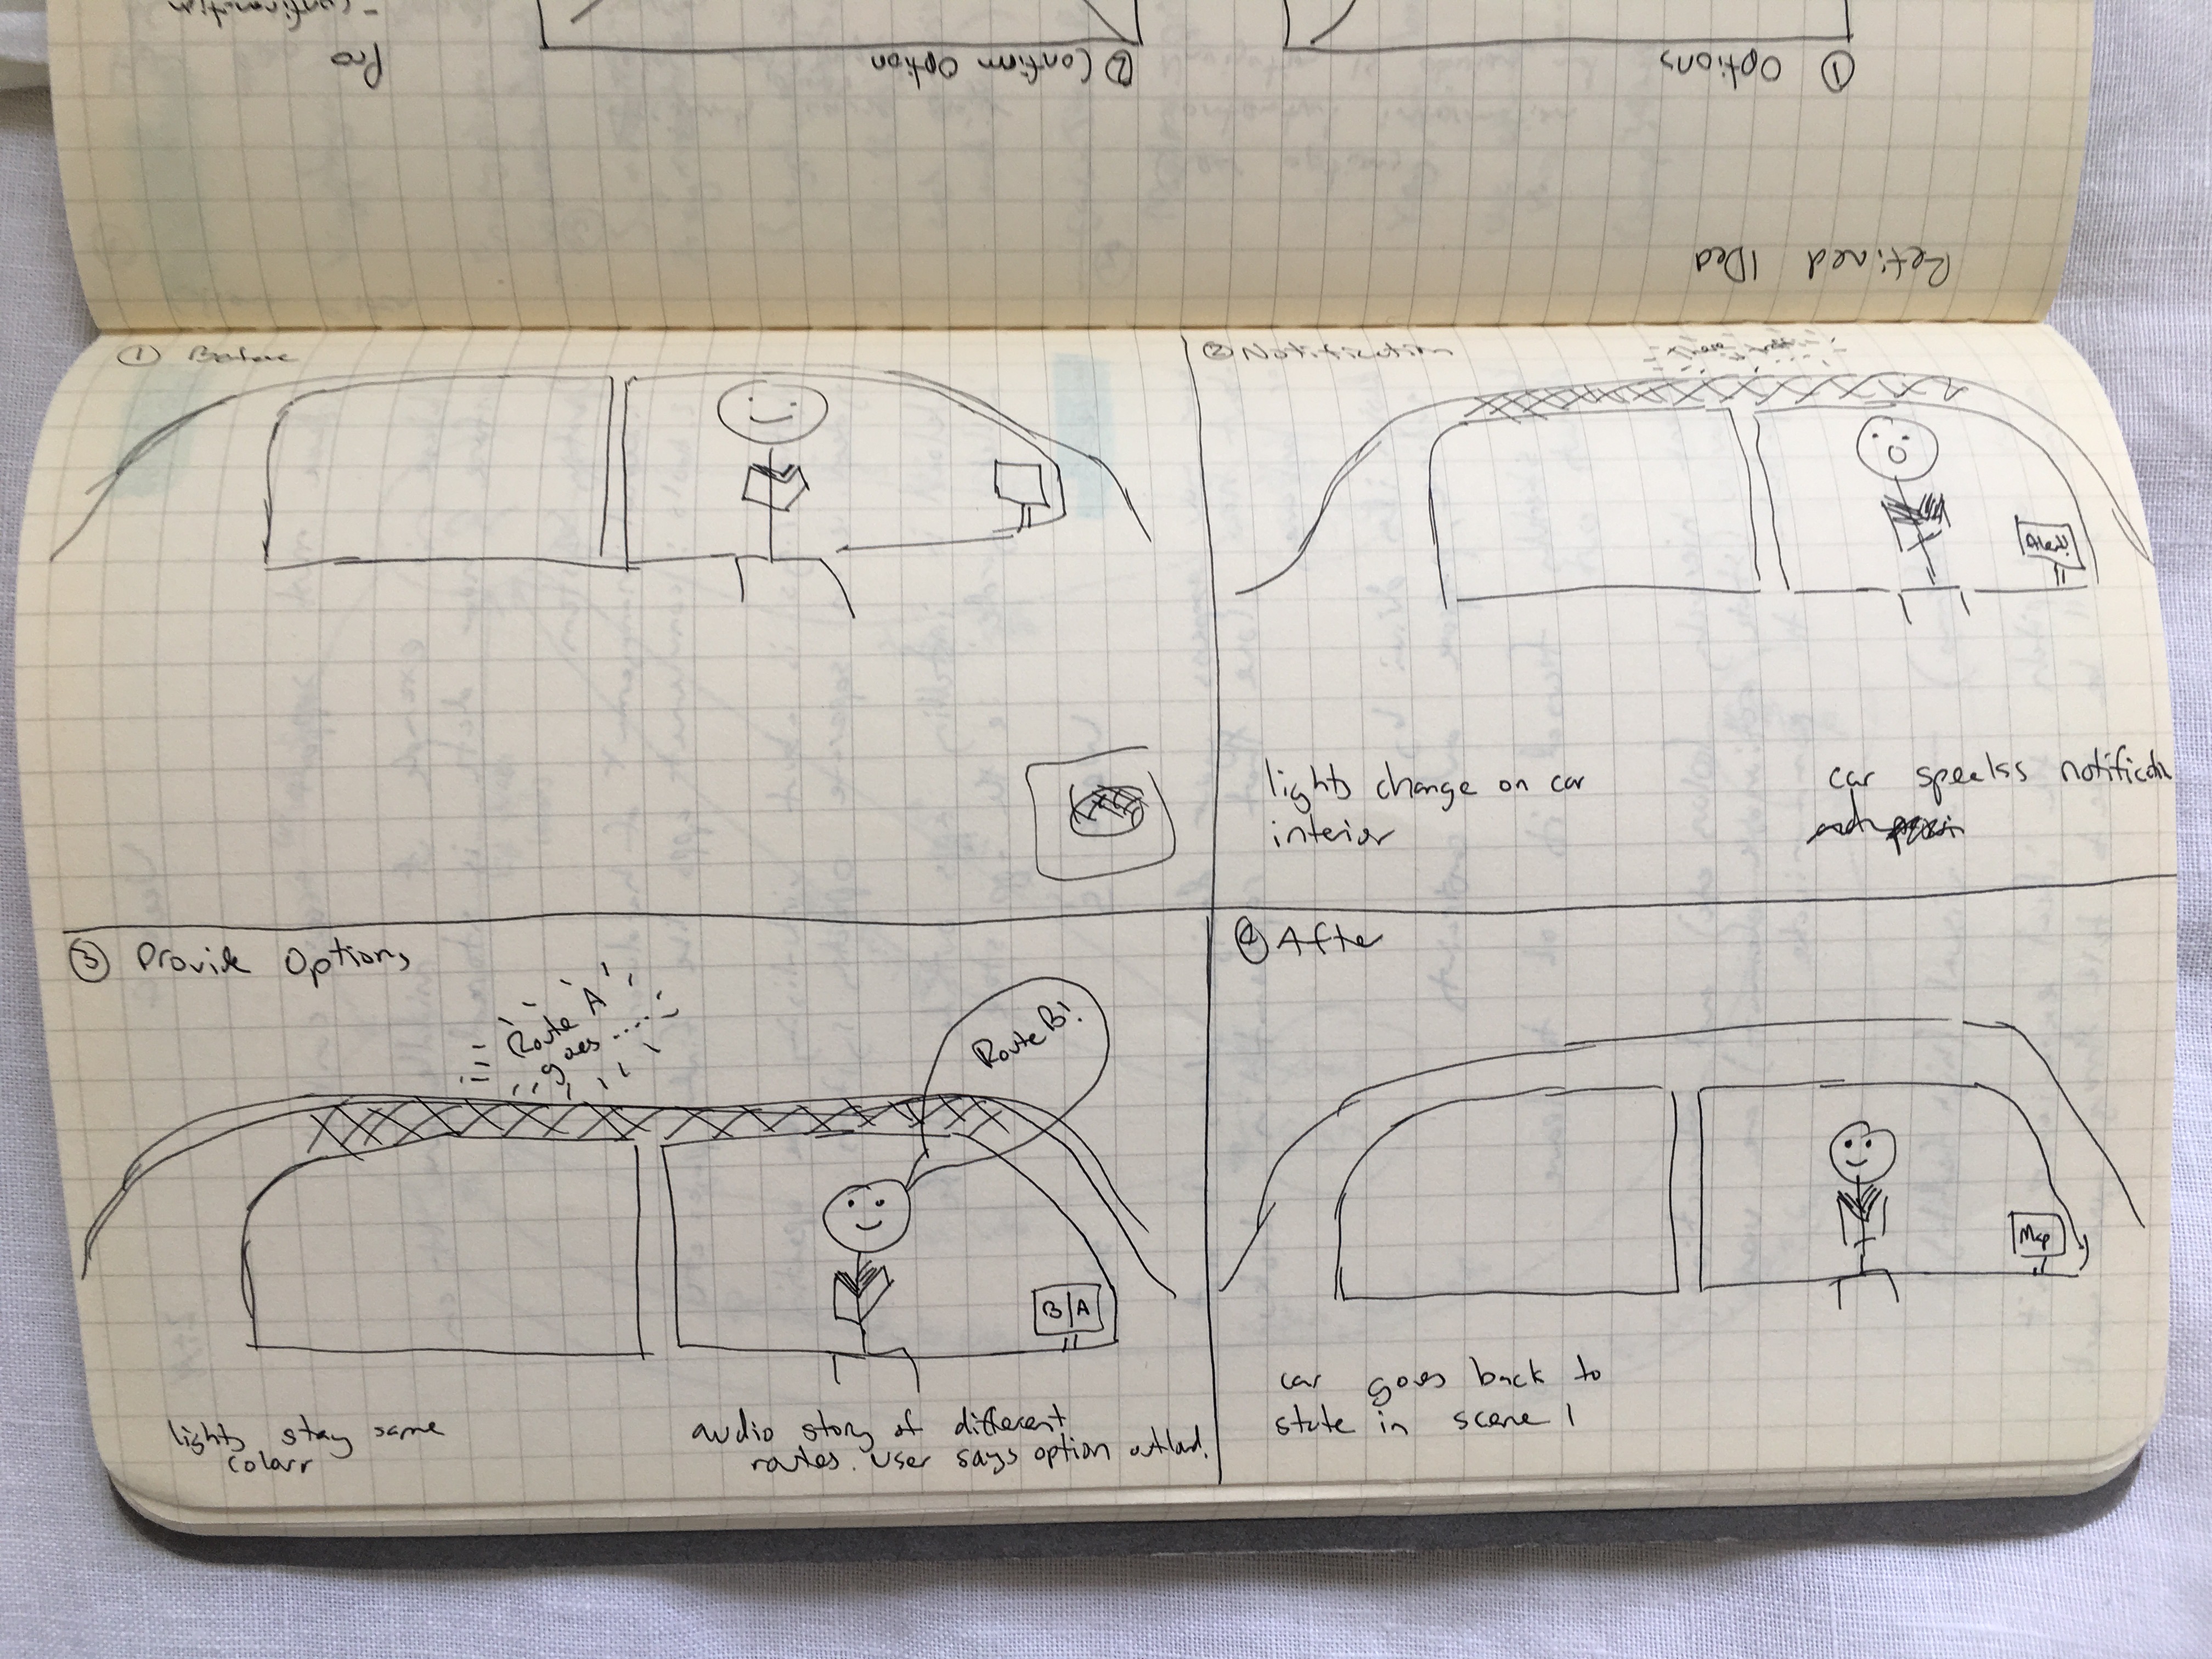 ① Options
② Confirm Option
Pro
- Confirmation
Refined IDea
① Before
② Notification
Alert!
lights change on car
interior
car speakss notificatio
③ Provide Options
Route A
goes ....
Route B!
B|A
lights stay same
colorr
audio story of different
routes. user says option outloud.
④ After
Map
car goes back to
state in scene 1